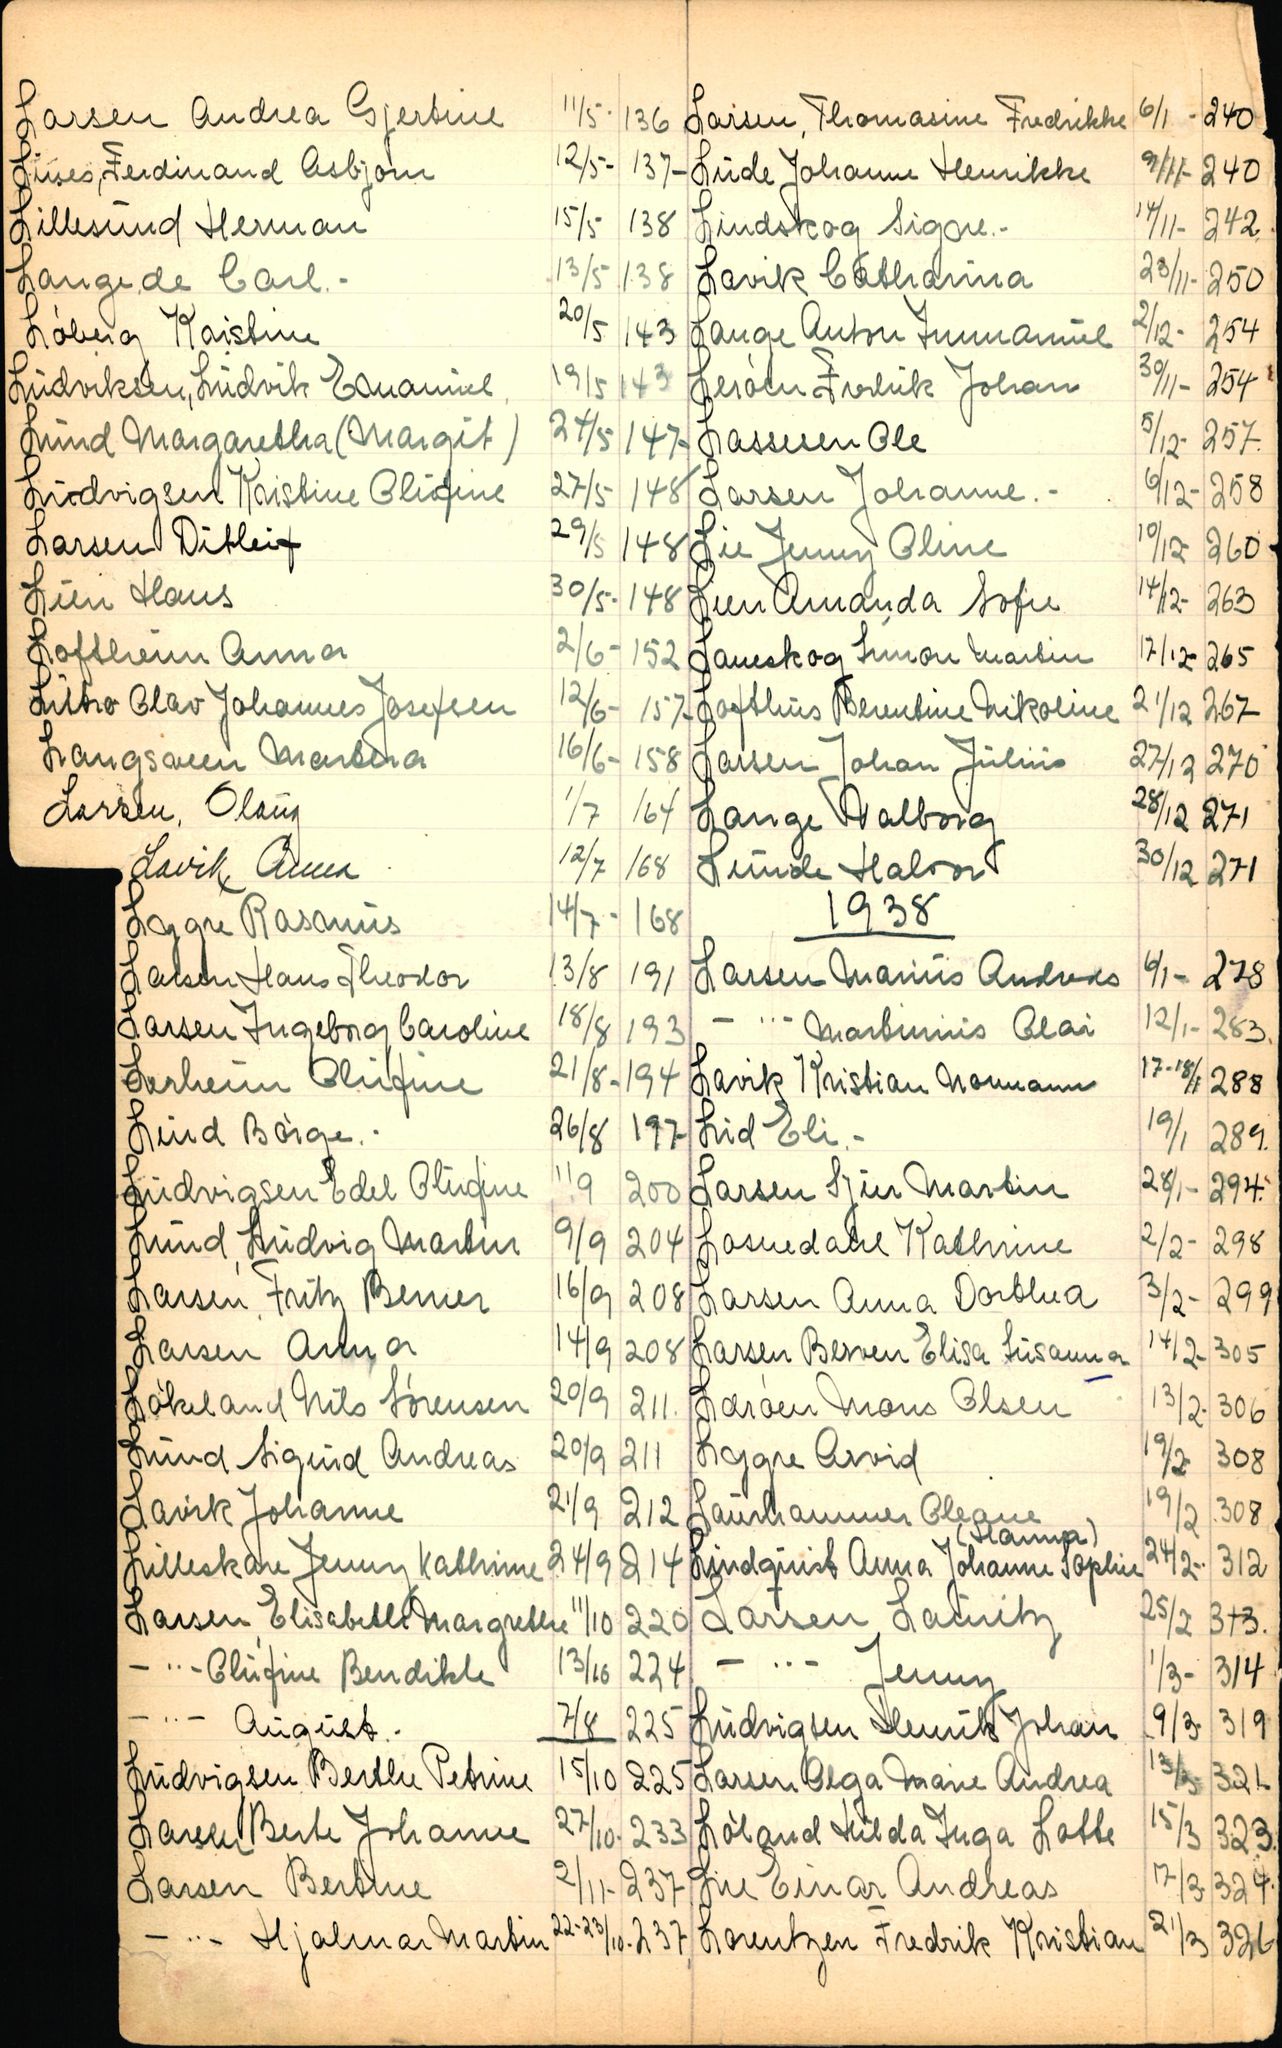 Larsen Andrea Gjertine 11/5- 136
Ferdinand Asbjørn 12/5- 137-
Lillesund Herman 15/5 138
Lange, de Carl.- 13/5 138
Løberg Kristine 20/5 143
Ludviksen, Ludvik Emanuel. 19/5 143
Lund Margaretha (Margit) 24/5 147-
Ludvigsen Kristine Olufine 27/5 148
Larsen Ditleif 29/5 148
Lien Hans 30/5- 148
Loftheim Anna 2/6- 152
Olav Johannes Josefsen 12/6- 157-
Martina 16/6- 158
Larsen, Olaug 1/7 164
Lavik Anna 12/7 168
Lygre Rasmus 14/7- 168
Larsen Hans Theodor 13/8 191
Larsen Ingeborg Caroline 18/8 193
Lerheim Olufine 21/8- 194
Lind Børge.- 26/8 197-
Ludvigsen Edel Olufine 1/9 200
Lund Ludvig Martin 9/9 204
Larsen, Fritz Berner 16/9 208
Larsen Anna 14/9 208
Løkeland Nils Sørensen 20/9 211.
Lund Sigurd Andreas 20/9 211
Lavik Johanne 21/9 212
Lilleskare Jenny Kathrine 24/9 214
Larsen, Elisabeth Margrethe 11/10 220
-"- Olufine Bendikte 13/10 224
-"- August. 7/8 225
Ludvigsen Berthe Petrine 15/10 225
Larsen Berte Johanne 27/10- 233
Larsen Bertine 2/11- 237
-"- Hjalmar Martin 22-23/10- 237
Larsen, Thomasine Fredrikke 6/1 - 240
Linde Johanne Henrikke 9/11- 240
Lindskog Signe.- 14/11- 242
Lavik Catharina 23/11- 250
Lange Anton Immanuel 2/12- 254
Lerøen Fredrik Johan 30/11- 254
Lassesen Ole 5/12- 257.
Larsen Johanne.- 6/12- 258
Lie Jenny Oline 10/12- 260
Lien Amanda Sofie 14/12- 263
Simon Martin 17/12- 265
Lofthus Berentine Nikoline 21/12 267
Larsen Johan Julius 27/12 270
Lange Valborg 28/12 271
Lunde Halvor 30/12 271
1938
Larsen Marius Andreas 6/1- 278
-"- Martinius Olai 12/1- 283.
Lavik Kristian Normann 17-18/1 288
Lid Eli.- 19/1 289.
Larsen Sjur Martin 28/1- 294.
Losnedahl Kathrine 2/2- 298
Larsen Anna Dorthea 3/2- 299
Larsen Berven Elisa Susanna 14/2- 305
Lerøen Mons Olsen 13/2- 306
Lygre Arvid 19/2 308
Laurhammer Olegine 19/2 308
(Hanna)
Lindquist Anna Johanne Sophie 24/2- 312
Larsen Lauritz 25/2 313.
-"- Jenny 1/3- 314
Ludvigsen Henrik Johan 9/3- 319
Larsen Olga Marie Andrea 13/3 321
Løland Hilda Inga Lotte 15/3 323.
Lie Einar Andreas 17/3- 324.
Lorentzen Fredrik Kristian 21/3 326